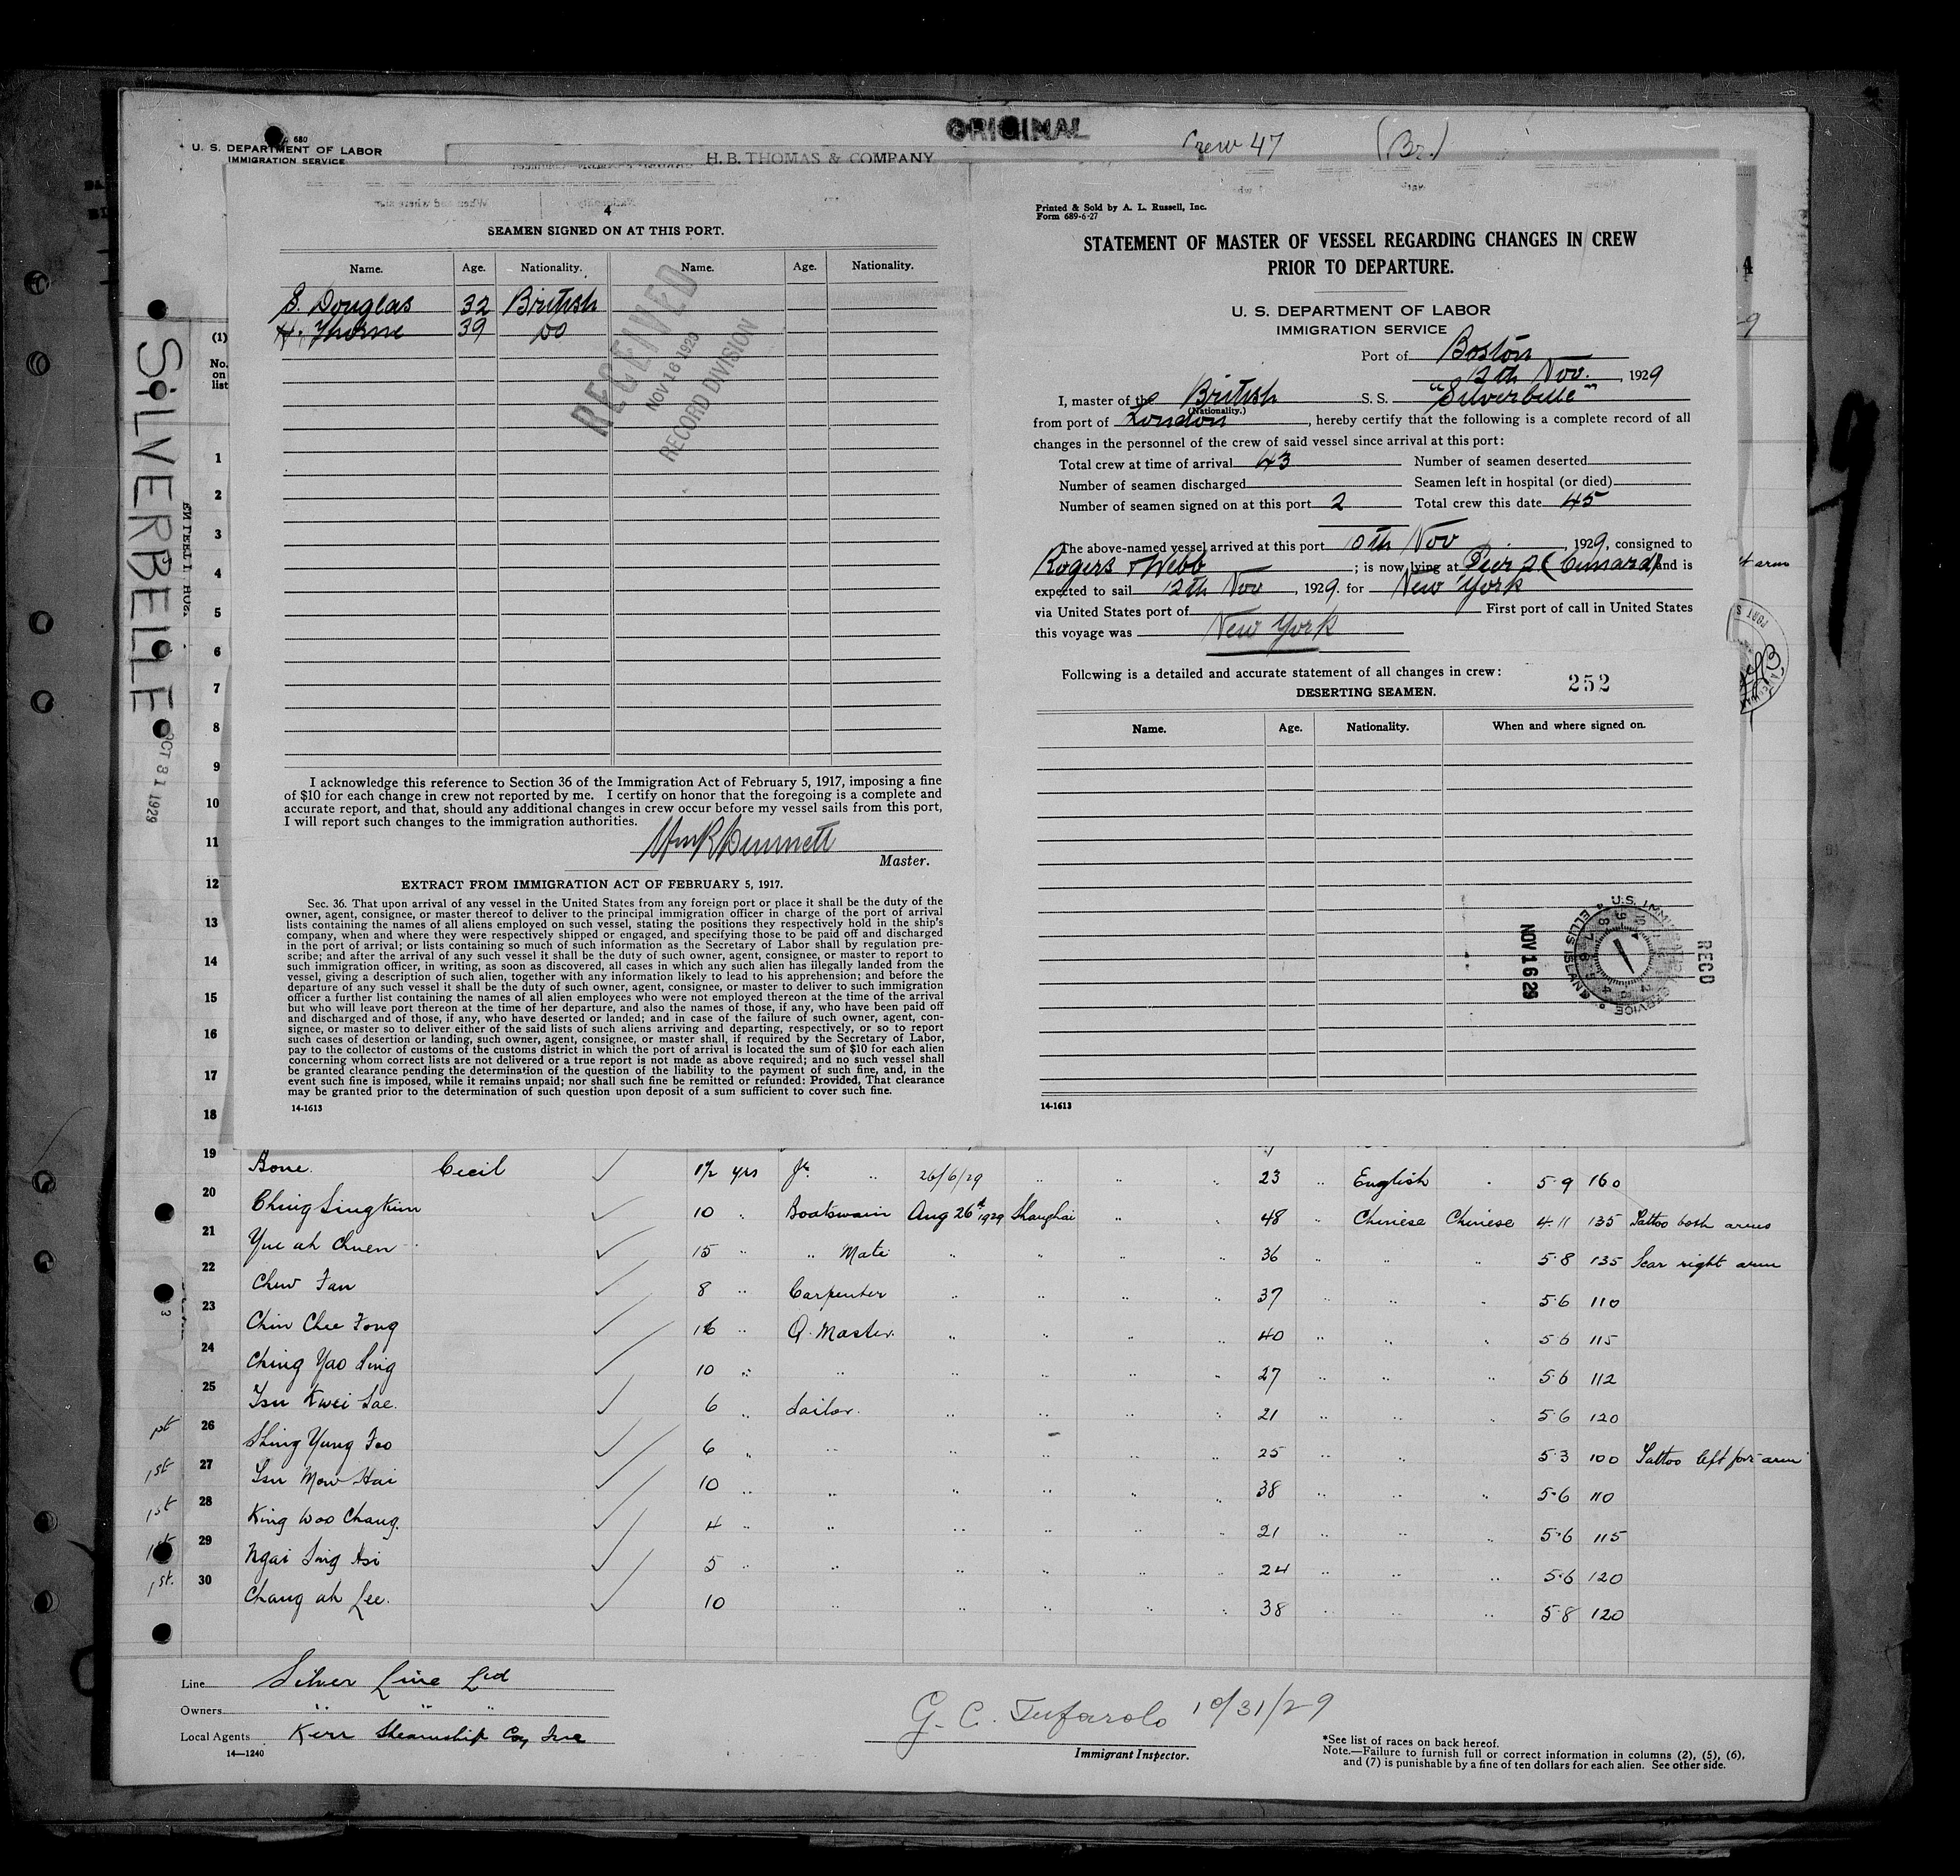 ORIGINAL
Crew 47 (Br.)
680
U. S. DEPARTMENT OF LABOR
IMMIGRATION SERVICE
H. B. THOMAS & COMPANY
SILVERBELLE
OCT 31 1929
4
SEAMEN SIGNED ON AT THIS PORT.
Name. Age. Nationality. Name. Age. Nationality.
S. Douglas 32 British
H. Thorne 39 Do
RECEIVED
NOV 16 1929
RECORD DIVISION
I acknowledge this reference to Section 36 of the Immigration Act of February 5, 1917, imposing a fine
of $10 for each change in crew not reported by me. I certify on honor that the foregoing is a complete and
accurate report, and that, should any additional changes in crew occur before my vessel sails from this port,
I will report such changes to the immigration authorities.
Master.
EXTRACT FROM IMMIGRATION ACT OF FEBRUARY 5, 1917.
Sec. 36. That upon arrival of any vessel in the United States from any foreign port or place it shall be the duty of the
owner, agent, consignee, or master thereof to deliver to the principal immigration officer in charge of the port of arrival
lists containing the names of all aliens employed on such vessel, stating the positions they respectively hold in the ship's
company, when and where they were respectively shipped or engaged, and specifying those to be paid off and discharged
in the port of arrival; or lists containing so much of such information as the Secretary of Labor shall by regulation pre-
scribe; and after the arrival of any such vessel it shall be the duty of such owner, agent, consignee, or master to report to
such immigration officer, in writing, as soon as discovered, all cases in which any such alien has illegally landed from the
vessel, giving a description of such alien, together with any information likely to lead to his apprehension; and before the
departure of any such vessel it shall be the duty of such owner, agent, consignee, or master to deliver to such immigration
officer a further list containing the names of all alien employees who were not employed thereon at the time of the arrival
but who will leave port thereon at the time of her departure, and also the names of those, if any, who have been paid off
and discharged and of those, if any, who have deserted or landed; and in case of the failure of such owner, agent, con-
signee, or master so to deliver either of the said lists of such aliens arriving and departing, respectively, or so to report
such cases of desertion or landing, such owner, agent, consignee, or master shall, if required by the Secretary of Labor,
pay to the collector of customs of the customs district in which the port of arrival is located the sum of $10 for each alien
concerning whom correct lists are not delivered or a true report is not made as above required; and no such vessel shall
be granted clearance pending the determination of the question of the liability to the payment of such fine, and, in the
event such fine is imposed, while it remains unpaid; nor shall such fine be remitted or refunded: Provided, That clearance
may be granted prior to the determination of such question upon deposit of a sum sufficient to cover such fine.
14-1613
Printed & Sold by A. L. Russell, Inc.
Form 689-6-27
STATEMENT OF MASTER OF VESSEL REGARDING CHANGES IN CREW
PRIOR TO DEPARTURE.
U. S. DEPARTMENT OF LABOR
IMMIGRATION SERVICE
Port of Boston
12th Nov. , 1929
I, master of the British S. S. "Silverbelle"
(Nationality.)
from port of London , hereby certify that the following is a complete record of all
changes in the personnel of the crew of said vessel since arrival at this port:
Total crew at time of arrival 43 Number of seamen deserted
Number of seamen discharged Seamen left in hospital (or died)
Number of seamen signed on at this port 2 Total crew this date 45
The above-named vessel arrived at this port 10th Nov , 1929, consigned to
Rogers & Webb ; is now lying at Pier 2 (Cunard) and is
expected to sail 12th Nov , 1929. for New York
via United States port of First port of call in United States
this voyage was New York
Following is a detailed and accurate statement of all changes in crew:
252
DESERTING SEAMEN.
Name. Age. Nationality. When and where signed on.
U.S. IMMIGRATION SERVICE ELLIS ISLAND
RECD
NOV 16 29
14-1613
(1)
No. on list
1
2
3
4
5
6
7
8
9
10
11
12
13
14
15
16
17
18
19 Bone Cecil 1½ yrs Jr. " 26/6/29 " " " 23 " English " 5.9 160
20 Ching Sing Kum 10 " Boatswain Aug 26th 1929 Shanghai " " 48 " Chinese Chinese 4.11 135 Tattoo both arms
21 Yue ah Chuen 15 " " Mate " " " " 36 " " " 5.8 135 Scar right arm
22 Chew Fan 8 " Carpenter " " " " 37 " " " 5.6 110
23 Chin Chee Fong 16 " Q. Master. " " " " 40 " " " 5.6 115
24 Ching Yao Sing 10 " " " " " " 27 " " " 5.6 112
25 Tsu Kwei Sae. 6 " Sailor. " " " " 21 " " " 5.6 120
1st 26 Shing Yung Foo 6 " " " " " " 25 " " 5.3 100 Tattoo left fore arm
1st 27 Tsu Mow Hai 10 " " " " " " 38 " " " 5.6 110
1st 28 King Woo Chang. 4 " " " " " " 21 " " " 5.6 115
1st 29 Ngai Sing Asi 5 " " " " " " 24 " " " 5.6 120
1st. 30 Chang ah Lee. 10 " " " " " 38 " " " 5.8 120
Line Silver Line Ltd
Owners " " "
Local Agents Kerr Steamship Coy Inc
14—1240
G. C. Tufarolo 10/31/29
Immigrant Inspector.
*See list of races on back hereof.
Note.—Failure to furnish full or correct information in columns (2), (5), (6),
and (7) is punishable by a fine of ten dollars for each alien. See other side.